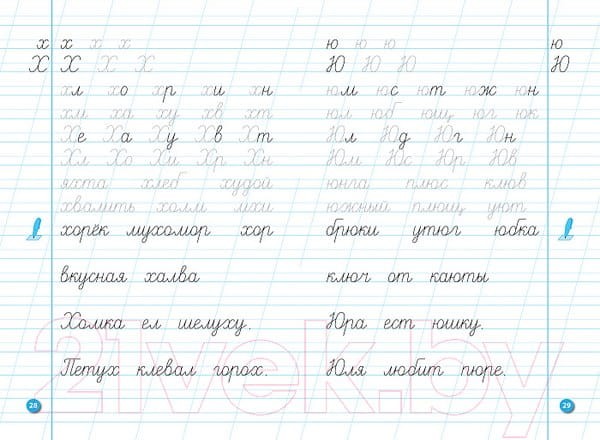 х х х х
Х Х Х Х
хл хо хр хи хн
хм ха ху хв хт
Хе Ха Ху Хв Хт
Хл Хо Хи Хр Хн
яхта хлеб худой
хвалить холм мхи
хорёк мухомор хор
вкусная халва
Хомка ел шелуху.
Петух клевал горох.
28
ю ю ю ю
Ю Ю Ю Ю
юм юс ют юж юн
юл юб ющ юг юк
Юл Юд Юг Юн
Юм Юс Юр Юв
юнга плюс клюв
южный плющ уют
брюки утюг юбка
ключ от каюты
Юра ест юшку.
Юля любит пюре.
29
21vek.by